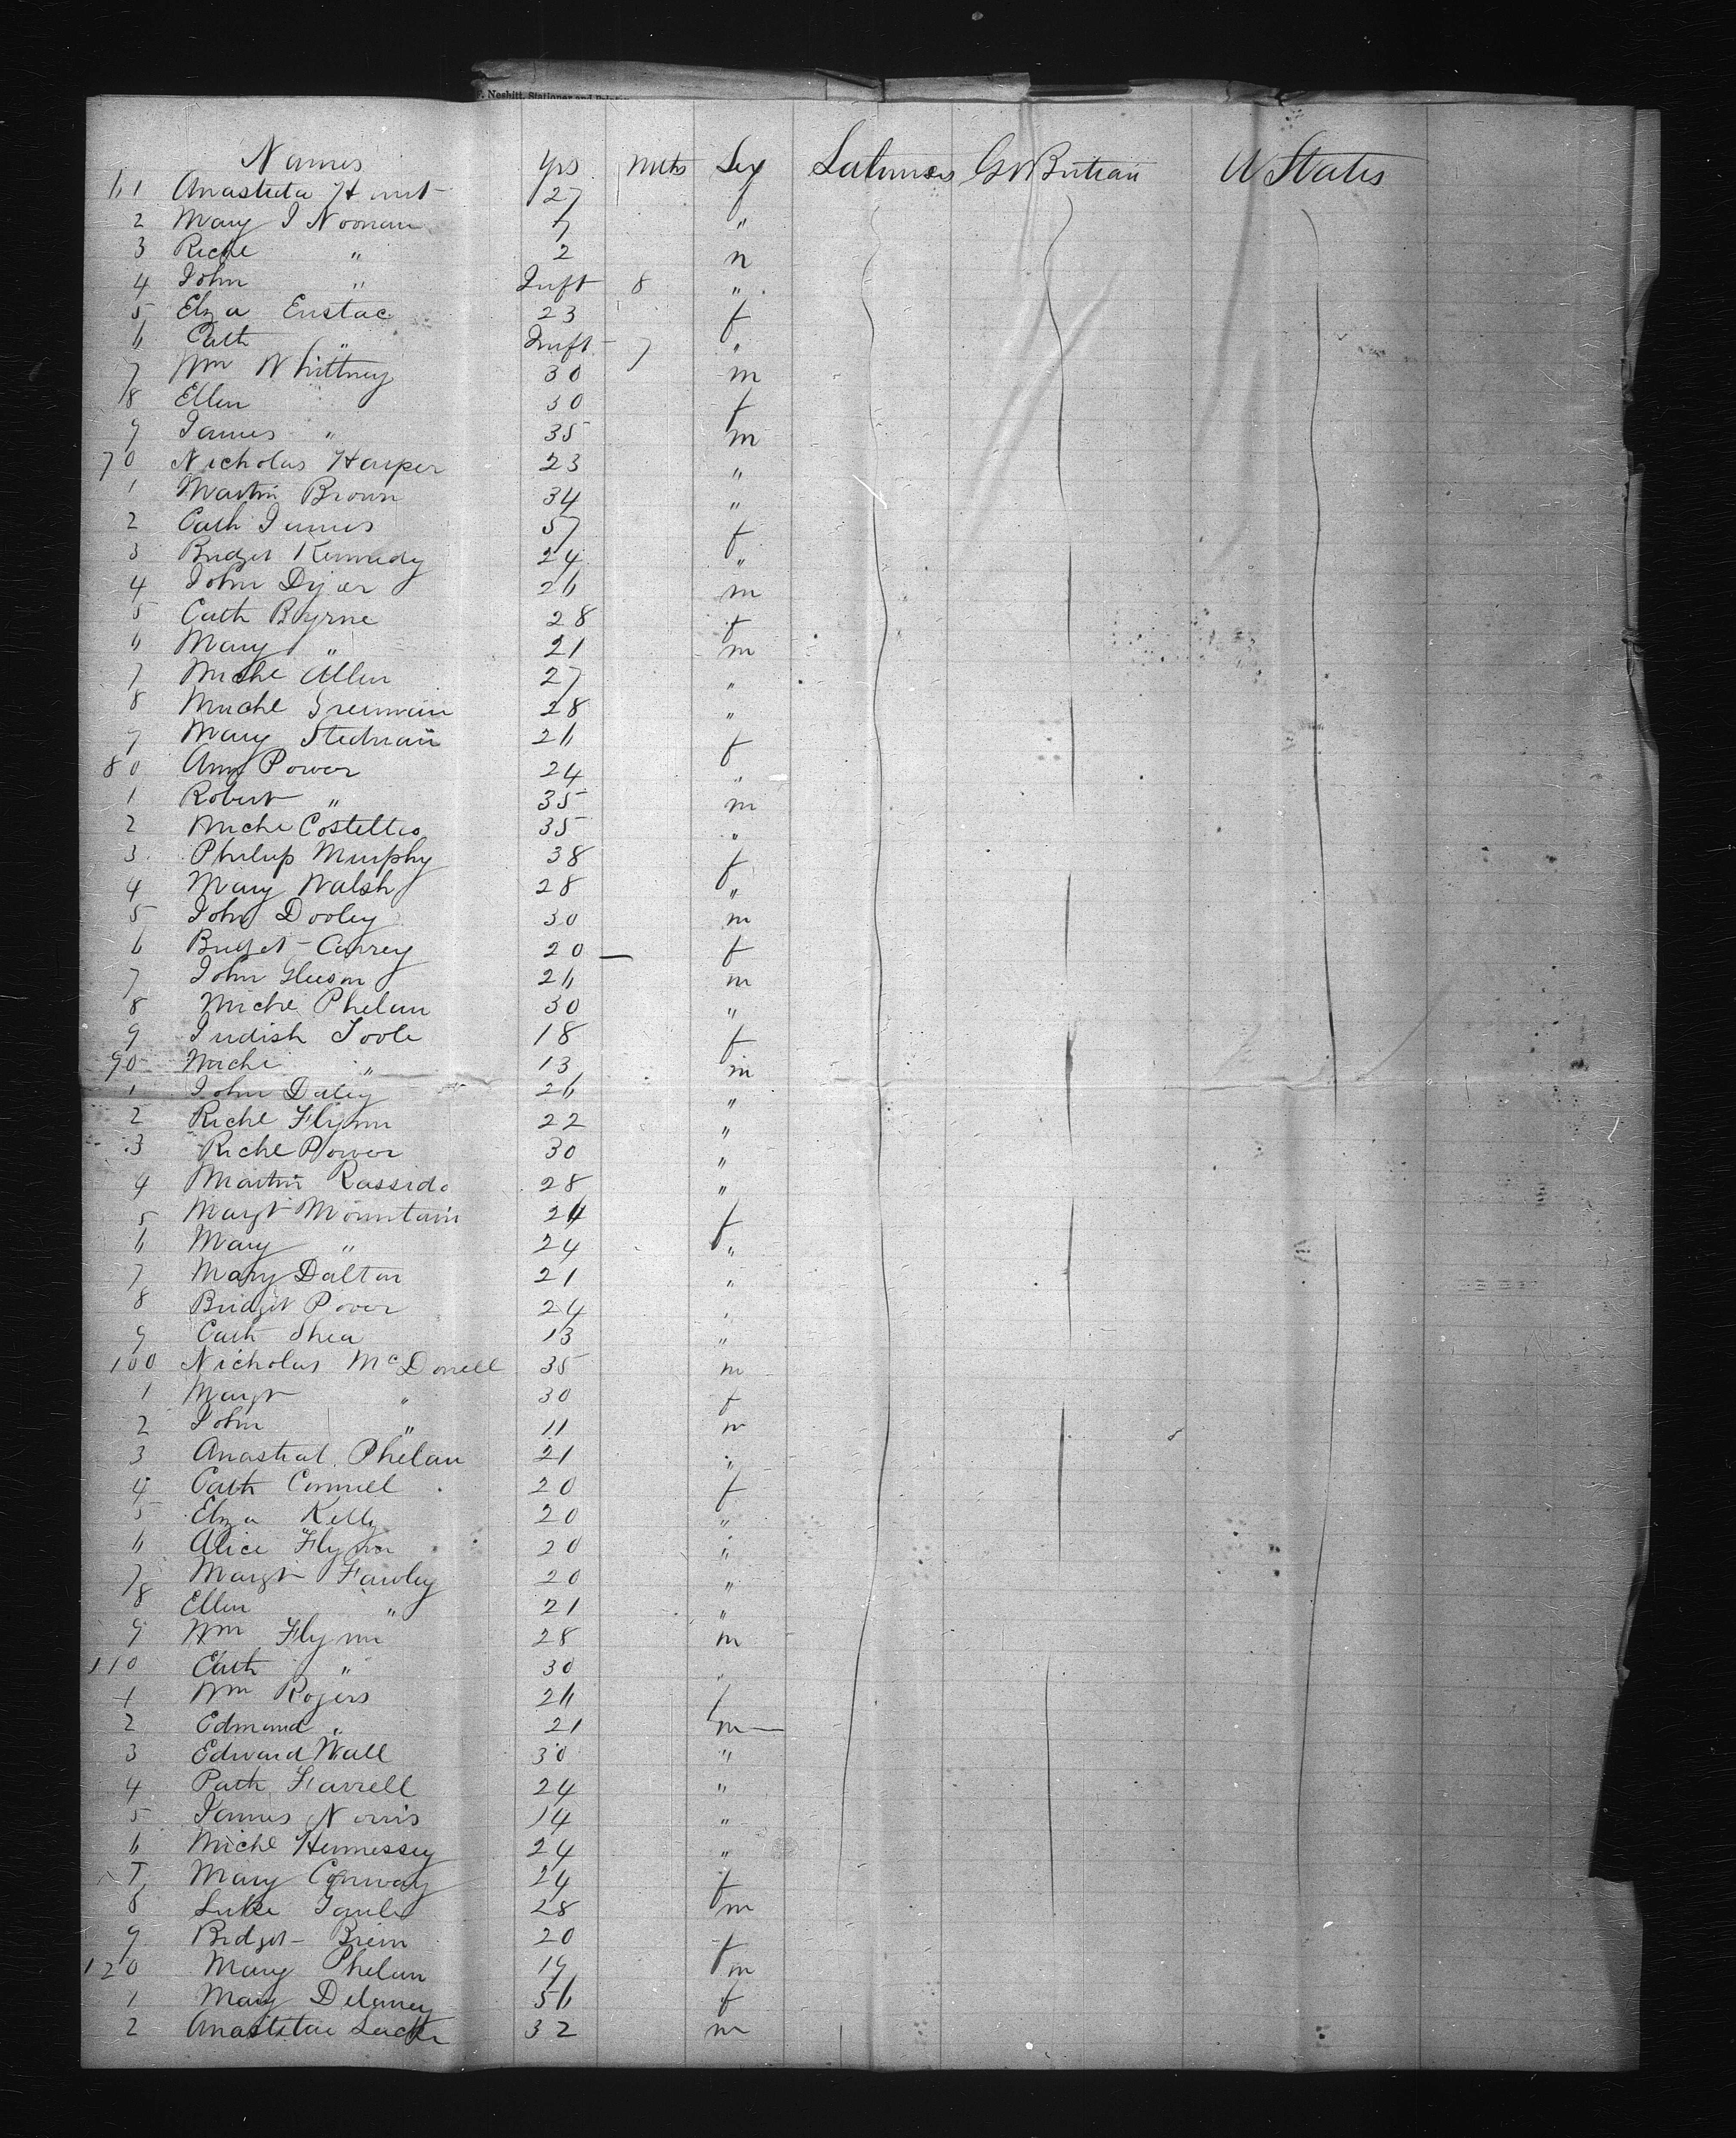 P. Nesbitt, Stationer and Printer
Names yrs Mths Sex Laburers Gt Britian U States
61 Anastatia Hunt 27 f
2 Mary J Noonan 7 "
3 Riche " 2 m
4 John " Inft 8 "
5 Elza Eustac 23 f
6 Cath " Inft 7 "
7 Wm Whittney 30 m
8 Ellen 30 f
9 James " 35 m
70 Nicholas Harper 23 "
1 Martin Brown 34 "
2 Cath 57 f
3 Bridget Kennedy 24 "
4 John Dyer 26 m
5 Cath Byrne 28 f
6 Mary " 21 m
7 Miche Allen 27 "
8 Michl 28 "
9 Mary Stedman 26 f
80 Ann Power 24 "
1 Robert " 35 m
2 Miche Costello 35 "
3 Philip Murphy 38 f
4 Mary Walsh 28 "
5 John Dooley 30 m
6 Bridget - Carrey 20 — f
7 John Gleeson 26 m
8 Miche Phelan 30 "
9 Judish Toole 18 f
90 Miche " 13 m
1 John Daley 26 "
2 Riche Flynn 22 "
3 Riche Power 30 "
4 Martin 28 "
5 Margt Mountain 24 f
6 Mary " 24 "
7 Mary Dalton 21 "
8 Bridget Power 24 "
9 Cath Shea 13 "
100 Nicholas McDonell 35 m
1 Margt " 30 f
2 John " 11 m
3 Anastiat Phelan 21 "
4 Cath Connell 20 f
5 Elza Kelly 20 "
6 Alice Flynn 20 "
7 Margt Fawley 20 "
8 Ellen " 21 "
9 Wm Flynn 28 m
110 Cath " 30 "
1 Wm Rogers 26 f
2 Edmand " 21 m —
3 Edward Wall 30 "
4 Path Farrell 24 "
5 James Norris 14 "
6 Miche Hennessey 24 "
7 Mary Conway 24 f
8 Luke 28 m
9 Bridget - Brien 20 f
120 Mary Phelan 19 m
1 Mary Delaney 56 f
2 32 m